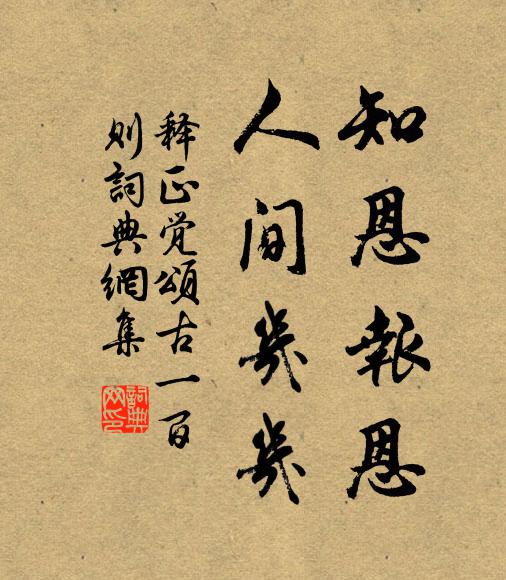 知恩報恩
人间幾幾
释正觉頌古一百
则詞典網集
詞典网印